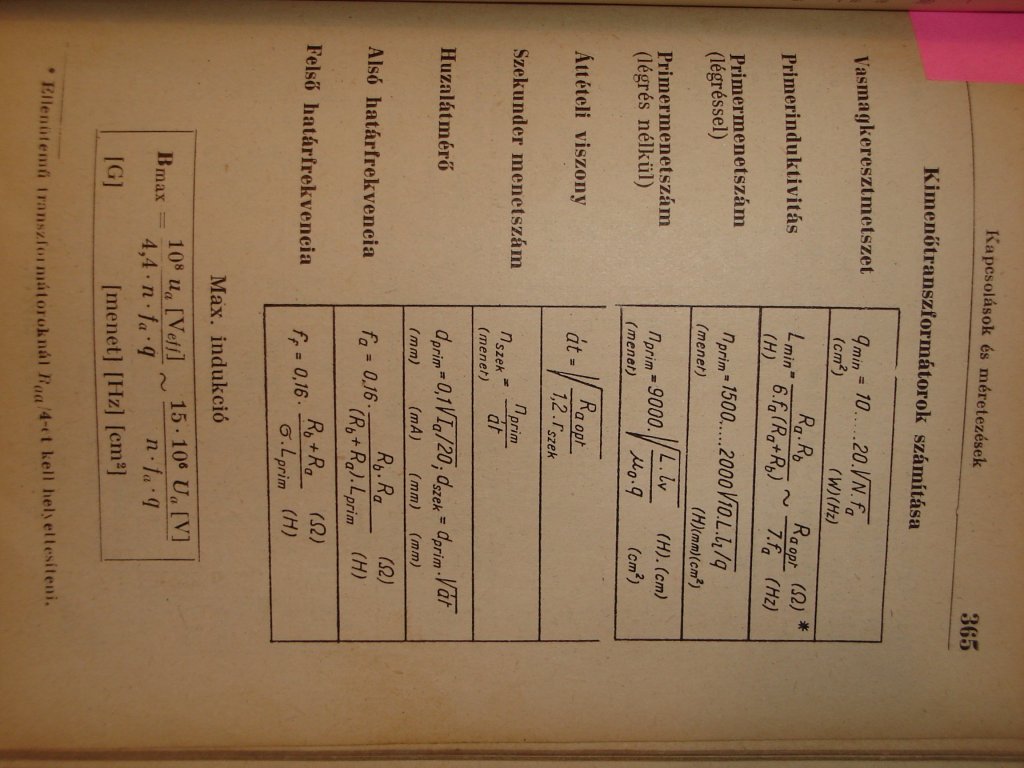 Kapcsolások és méretezések 365
Kimenőtranszformátorok számítása
Vasmagkeresztmetszet q_min = 10.....20.√N.f_a
(cm²) (W)(Hz)
Primerinduktivitás L_min = R_a.R_b / 6.f_a(R_a+R_b) ~ R_a opt / 7.f_a (Ω) *
(H) (Hz)
Primermenetszám n_prim = 1500.....2000√10.L.l_l/q
(légréssel) (menet) (H)(mm)(cm²)
Primermenetszám n_prim = 9000.√L.l_v / μ_0.q (H).(cm)
(légrés nélkül) (menet) (cm²)
Áttételi viszony át = √R_a opt / 1,2.r_szek
Szekunder menetszám n_szek = n_prim / át
(menet)
Huzalátmérő d_prim = 0,1√I_a/20; d_szek = d_prim.√át
(mm) (mA) (mm) (mm)
Alsó határfrekvencia f_a = 0,16. R_b.R_a / (R_b+R_a).L_prim (Ω)
(H)
Felső határfrekvencia f_f = 0,16. R_b+R_a / σ.L_prim (Ω)
(H)
Max. indukció
B_max = 10⁸ u_a [V_eff] / 4,4 · n · f_a · q ~ 15 · 10⁶ U_a [V] / n · f_a · q
[G] [menet] [Hz] [cm²]
* Ellenütemű transzformátoroknál R_aa/4-et kell helyettesíteni.